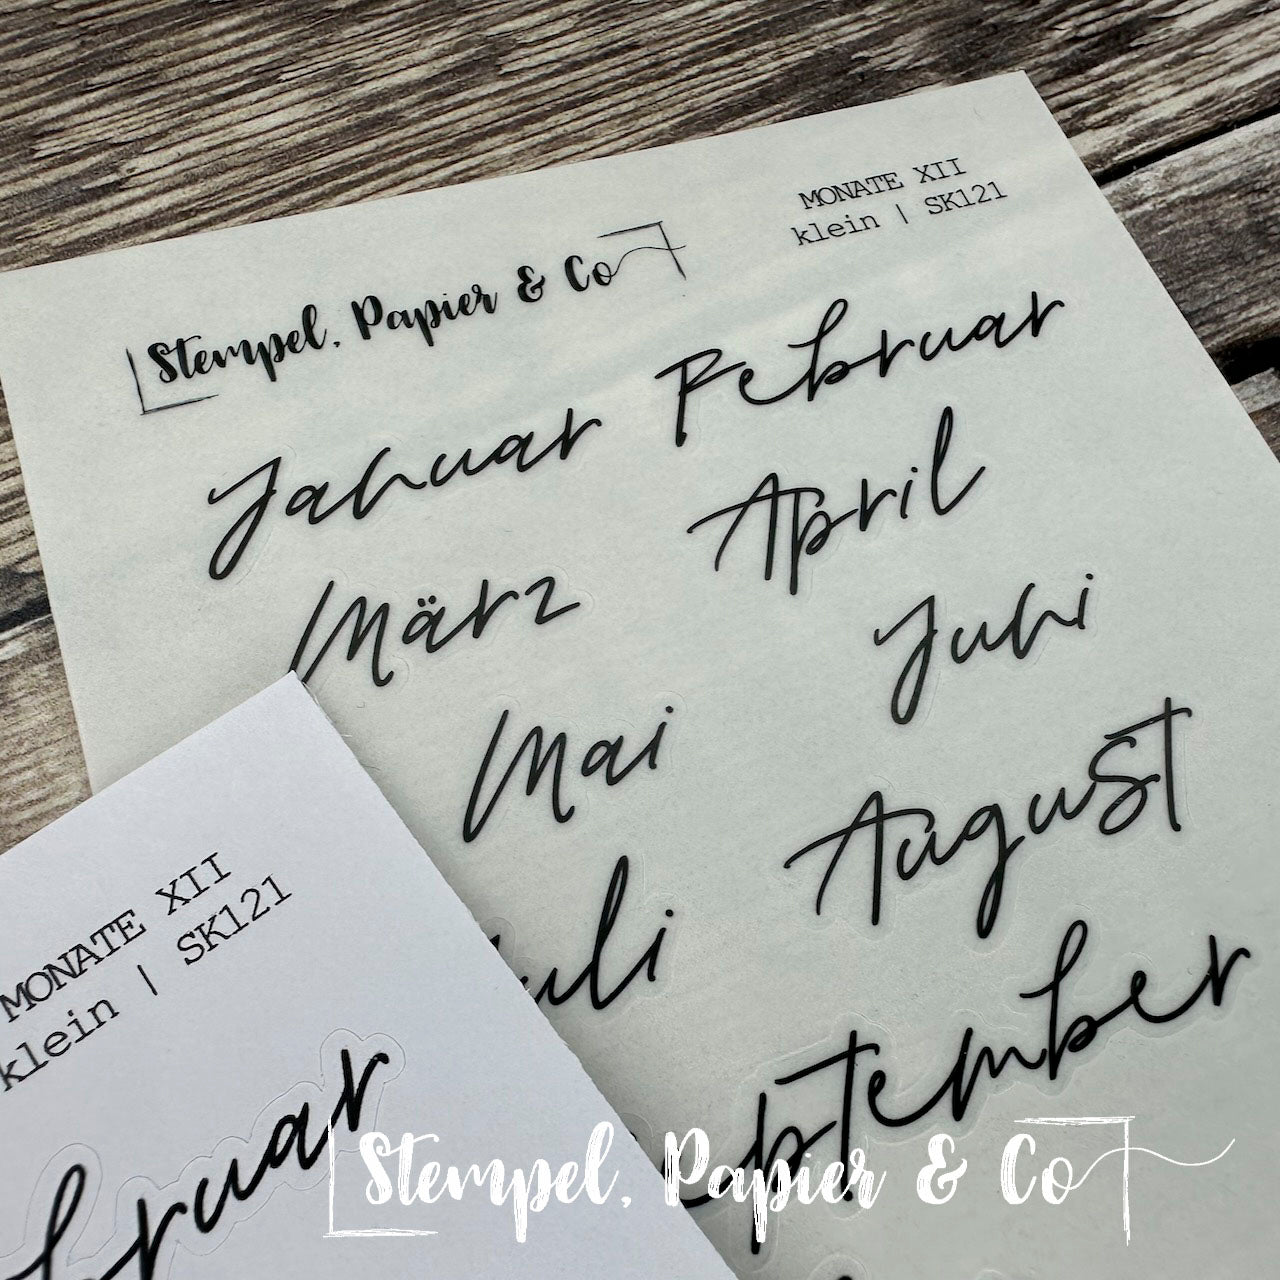 MONATE XII
klein | SK121
Stempel, Papier & Co
Januar Februar
März April
Mai Juni
uli August
ptember
MONATE XII
klein | SK121
bruar
Stempel, Papier & Co